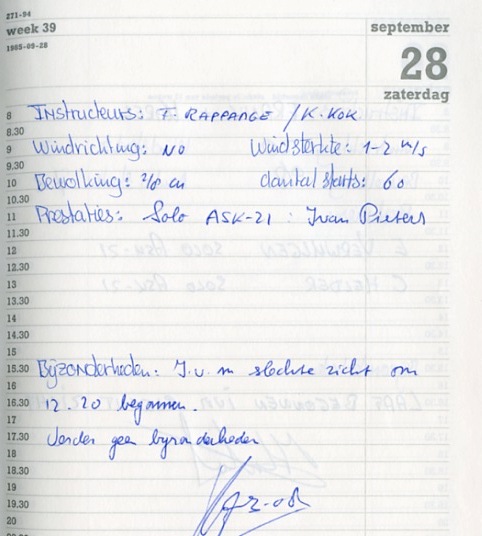 271-94
week 39
september
1985-09-28
28
zaterdag
8 Instructeurs: F. RAPPANGE / K. KOK
8.30
9 Windrichting: NO Windsterkte: 1-2 m/s
9.30
10 Bewolking: 2/8 cu Aantal starts: 60
10.30
11 Prestaties: Solo ASK-21 : Ivan Pieters
11.30
12
12.30
13
13.30
14
14.30
15
15.30 Bijzonderheden: I.v.m slechte zicht om
16
16.30 12.20 begonnen.
17
17.30 Verder geen byzonderheden
18
18.30
19
19.30
20